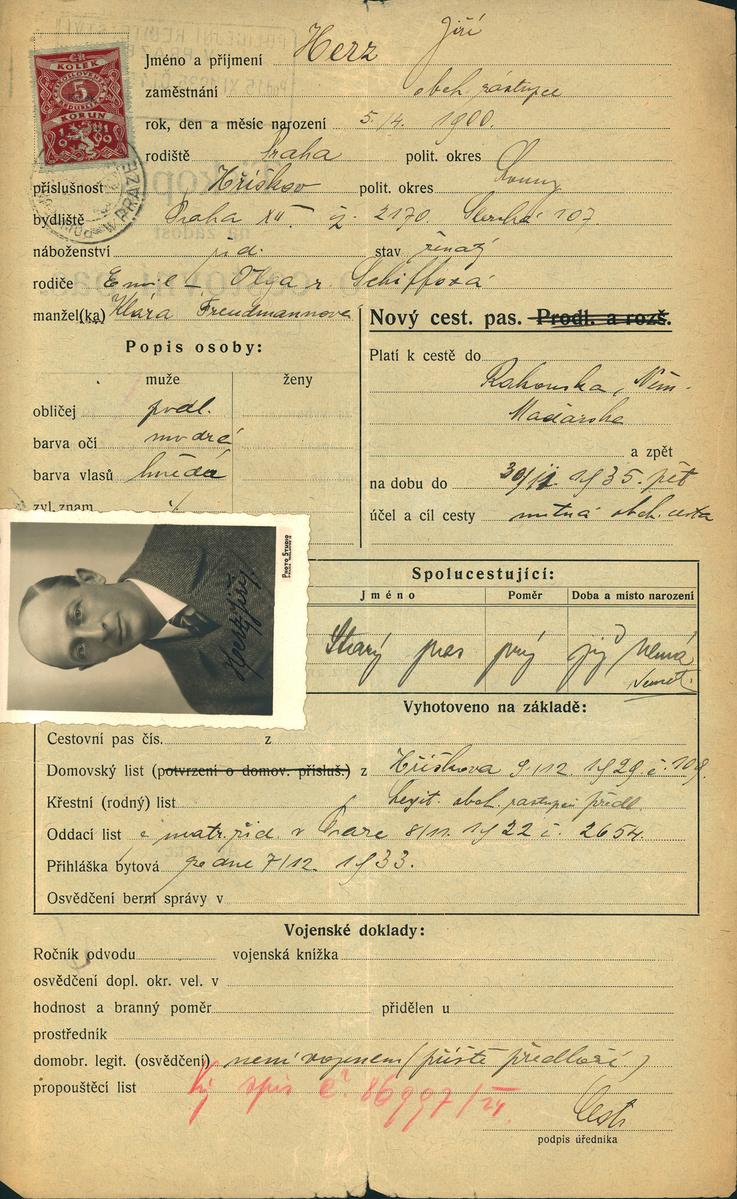 ČR
KOLEK
5
KORUN
Jméno a příjmení Herz Jiří
zaměstnání obch. zástupce
rok, den a měsíc narození 5./4. 1900.
rodiště Praha polit. okres
příslušnost Hříškov polit. okres Louny
bydliště Praha XII. č. 2170. Slezská 107.
náboženství žid. stav ženatý
rodiče Emil – Olga r. Schiffová
manžel(ka) Klára Freudmannova
Nový cest. pas. Prodl. a rozš.
Popis osoby:
muže ženy
obličej podl.
barva očí modré
barva vlasů hnědá
zvl. znam.
Platí k cestě do
Rakouska, Něm.
Maďarska
a zpět
na dobu do 30/11. 1935. pět
účel a cíl cesty nutná obch. cesta
PHOTO STUDIO
Herz Jiří
Spolucestující:
Jméno Poměr Doba a místo narození
Starý pas prý již nemá
Vyhotoveno na základě:
Cestovní pas čís. z
Domovský list (potvrzení o domov. přísluš.) z Hříškova 9./12. 1929. č. 109.
Křestní (rodný) list Legit. obch. zástupců předl.
Oddací list z matr. žid. v Praze 8/11. 1922 č. 2654.
Přihláška bytová ze dne 7/12. 1933.
Osvědčení berní správy v
Vojenské doklady:
Ročník odvodu vojenská knížka
osvědčení dopl. okr. vel. v
hodnost a branný poměr přidělen u
prostředník
domobr. legit. (osvědčení) není vojínem (příště předloží)
propouštěcí list
spis č. 86997/24.
podpis úředníka